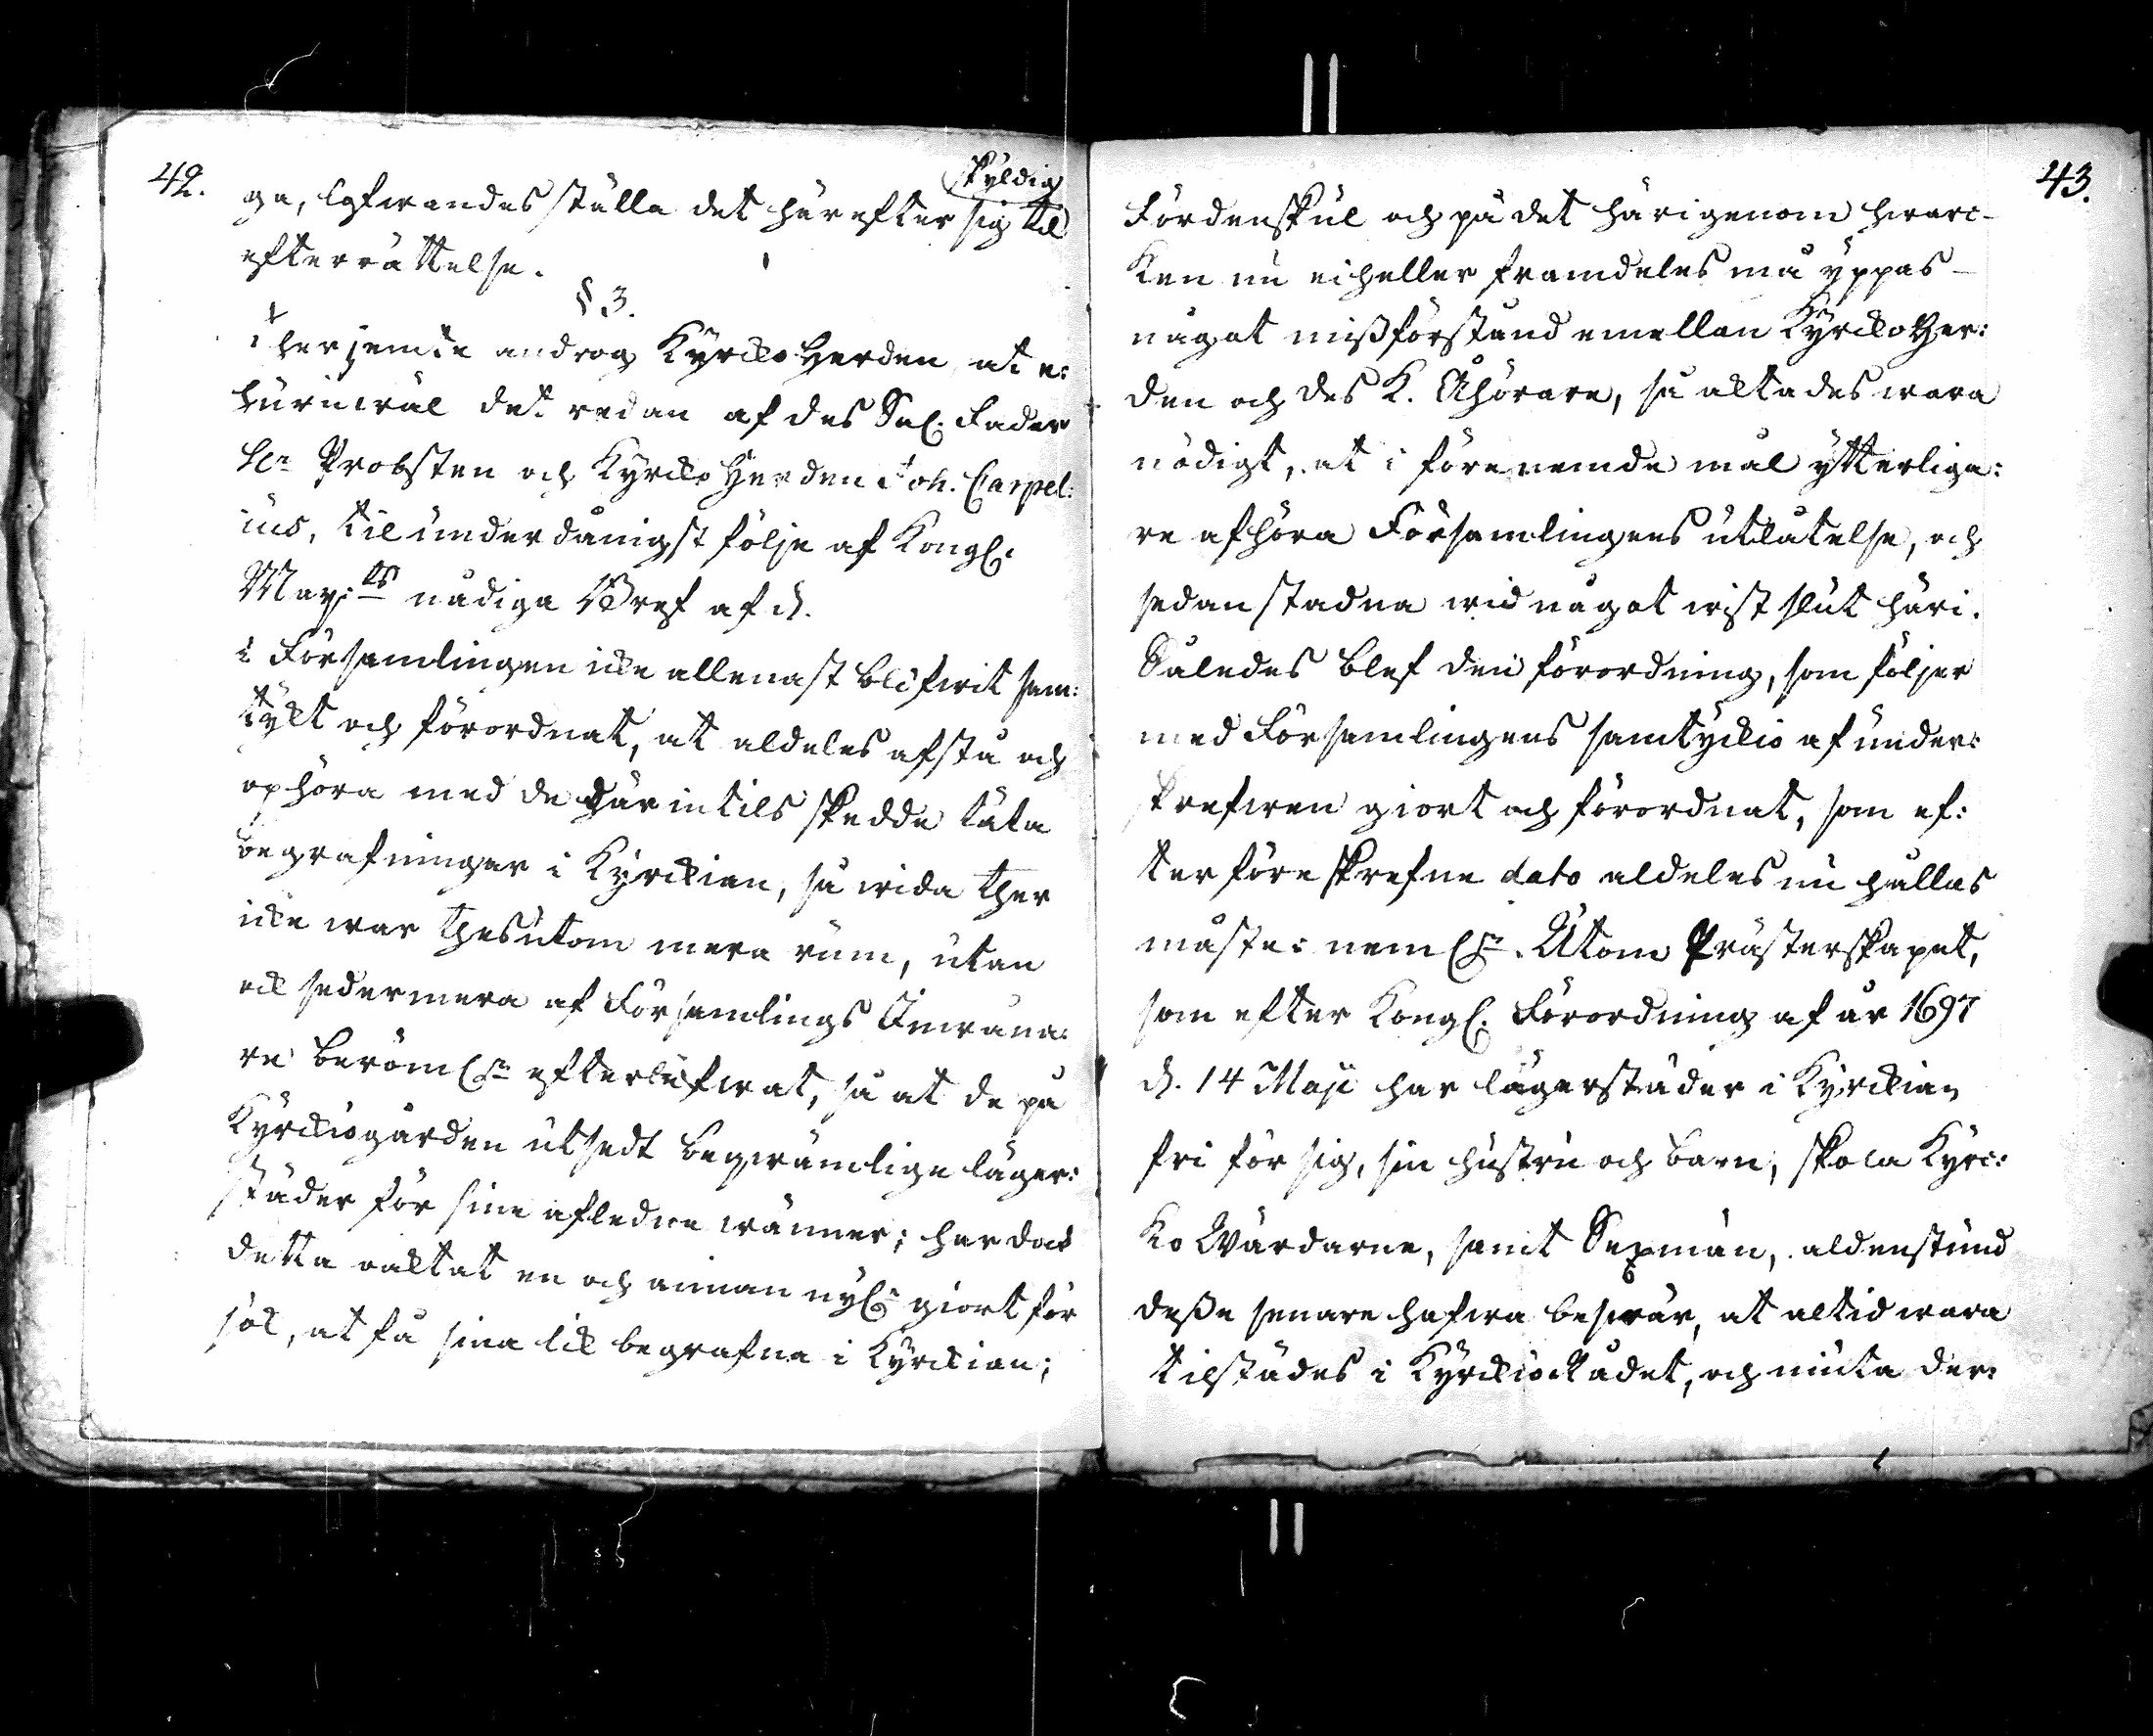 42.
skyldig
ga, lofwandes ställa det här efter sig til
efterrättelse.
§ 3.
Therjemte androg Kyrcko Herden at e:
huruwäl det redan af des Sal. Fader
Hr Probsten och Kyrcko Herden Joh. Carpel:
ius, til underdånigst följe af Kongl.
Maj:ts nådiga Bref af d.
i Församlingen icke allenast blifwit sam:
tykt och förordnat, at aldeles afstå och
ophöra med de här in tils skedde täta
begrafningar i Kyrckian, så wida ther
icke war thesutom mera rum, utan
ock sedermera af Församlings Inwåna:
re berömln efterlefwat, så at de på
Kyrckiogården utsedt beqwämlige läger:
städer för sine afledne wänner; har dock
detta oaktat en och annan nyln giort för
sök, at få sina lik begrafne i Kyrckian;
43.
Fördenskul och på det härigenom hwarc-
ken nu ei heller framdeles må yppas
något mißförstånd emellan Kyrcko Her:
den och des K. Åhörare, så aktades wara
nödigt, at i förenemde mål ytterliga:
re afhöra Församlingens utlåtelse, och
sedan stadna wid något wist slut häri.
Således blef den förordning, som följer
med Församlingens samtyckio af under:
skrefwen giort och förordnat, som ef:
ter föreskrefne dato aldeles nu hållas
måste: nemln. Utom Prästerskapet,
som efter Kongl. Förordning af år 1697
d. 14 Maji har lägerstäder i Kyrckian
fri för sig, sin hustru och barn, skola Kyrc:
ko Wärdarne, samt Sexmän, aldenstund
deße senare hafwa beswär, at altid wara
tilstädes i Kyrckiorådet, och niuta der: